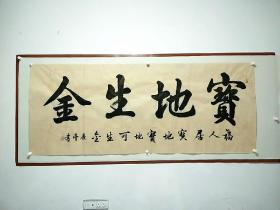 寶地生金
福人居寶地寶地可生金